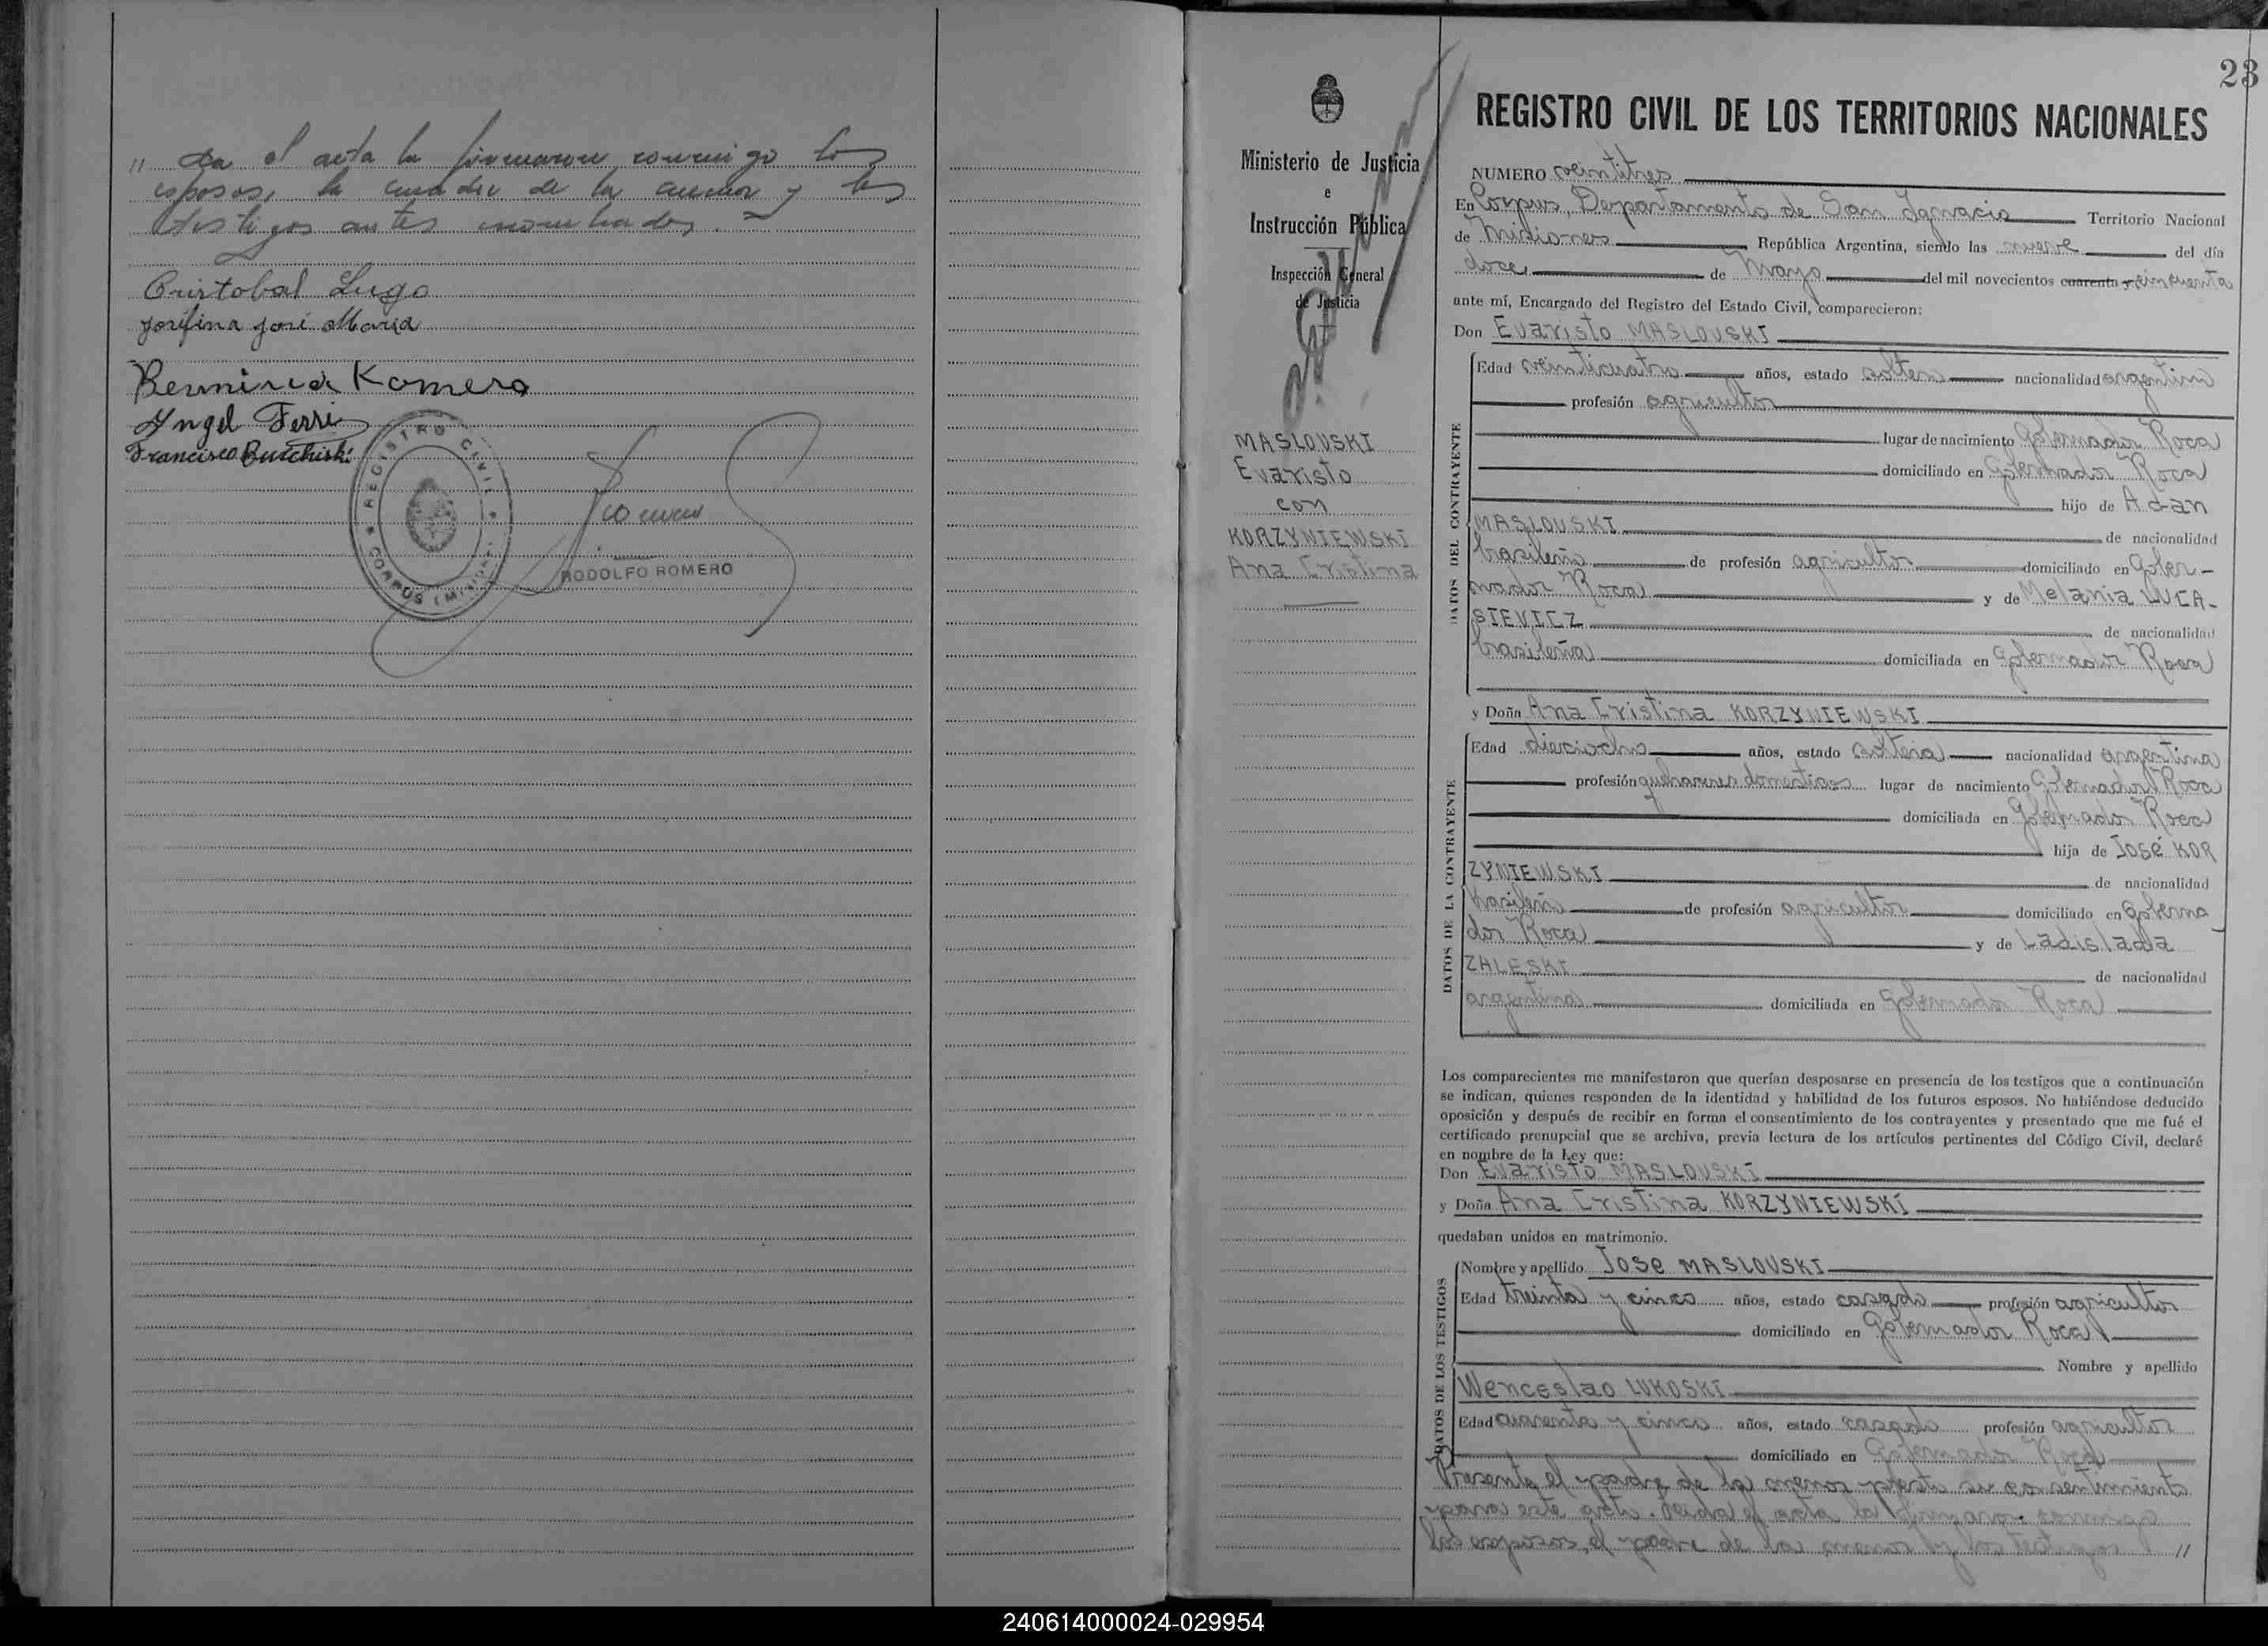 " da el acta la firmaron conmigo los
esposos, la madre de la menor y los
testigos antes nombrados.=
Cristobal Lugo
Josefina José María
Romero
Angel Ferri
Francisco Butchiski
REGISTRO CIVIL
CORPUS (MISIONES)
RODOLFO ROMERO
23
Ministerio de Justicia
e
Instrucción Pública
Inspección General
de Justicia
MASLOVSKI
Evaristo
con
KORZYNIEWSKI
Ana Cristina
REGISTRO CIVIL DE LOS TERRITORIOS NACIONALES
NUMERO veintitres
En Corpus, Departamento de San Ignacio Territorio Nacional
de Misiones República Argentina, siendo las nueve del día
doce de Mayo del mil novecientos cuarenta y cincuenta
ante mí, Encargado del Registro del Estado Civil, comparecieron:
Don Evaristo MASLOVSKI
DATOS DEL CONTRAYENTE
Edad veinticuatro años, estado soltero nacionalidad argentino
profesión agricultor
lugar de nacimiento Gobernador Roca
domiciliado en Gobernador Roca
hijo de Adan
MASLOVSKI de nacionalidad
brasileño de profesión agricultor domiciliado en Gober-
nador Roca y de Melania LUCA-
SIEVICZ de nacionalidad
brasileña domiciliada en Gobernador Roca
y Doña Ana Cristina KORZYNIEWSKI
DATOS DE LA CONTRAYENTE
Edad dieciocho años, estado soltera nacionalidad argentina
profesión quehaceres domesticos lugar de nacimiento Gobernador Roca
domiciliada en Gobernador Roca
hija de José KOR
ZYNIEWSKI de nacionalidad
brasileño de profesión agricultor domiciliado en Goberna
dor Roca y de Ladislada
ZALESKI de nacionalidad
argentina domiciliada en Gobernador Roca
Los comparecientes me manifestaron que querían desposarse en presencia de los testigos que a continuación
se indican, quienes responden de la identidad y habilidad de los futuros esposos. No habiéndose deducido
oposición y después de recibir en forma el consentimiento de los contrayentes y presentado que me fué el
certificado prenupcial que se archiva, previa lectura de los artículos pertinentes del Código Civil, declaré
en nombre de la Ley que:
Don Evaristo MASLOVSKI
y Doña Ana Cristina KORZYNIEWSKI
quedaban unidos en matrimonio.
DATOS DE LOS TESTIGOS
Nombre y apellido Jose MASLOVSKI
Edad treinta y cinco años, estado casado profesión agricultor
domiciliado en Gobernador Roca
Nombre y apellido
Wenceslao LUKOSKI
Edad cuarenta y cinco años, estado casado profesión agricultor
domiciliado en Gobernador Roca
Presente el padre de la menor presta su consentimiento
para este acto. Leida el acta la firmaron conmigo
los esposos, el padre de la menor y los testigos //
240614000024-029954